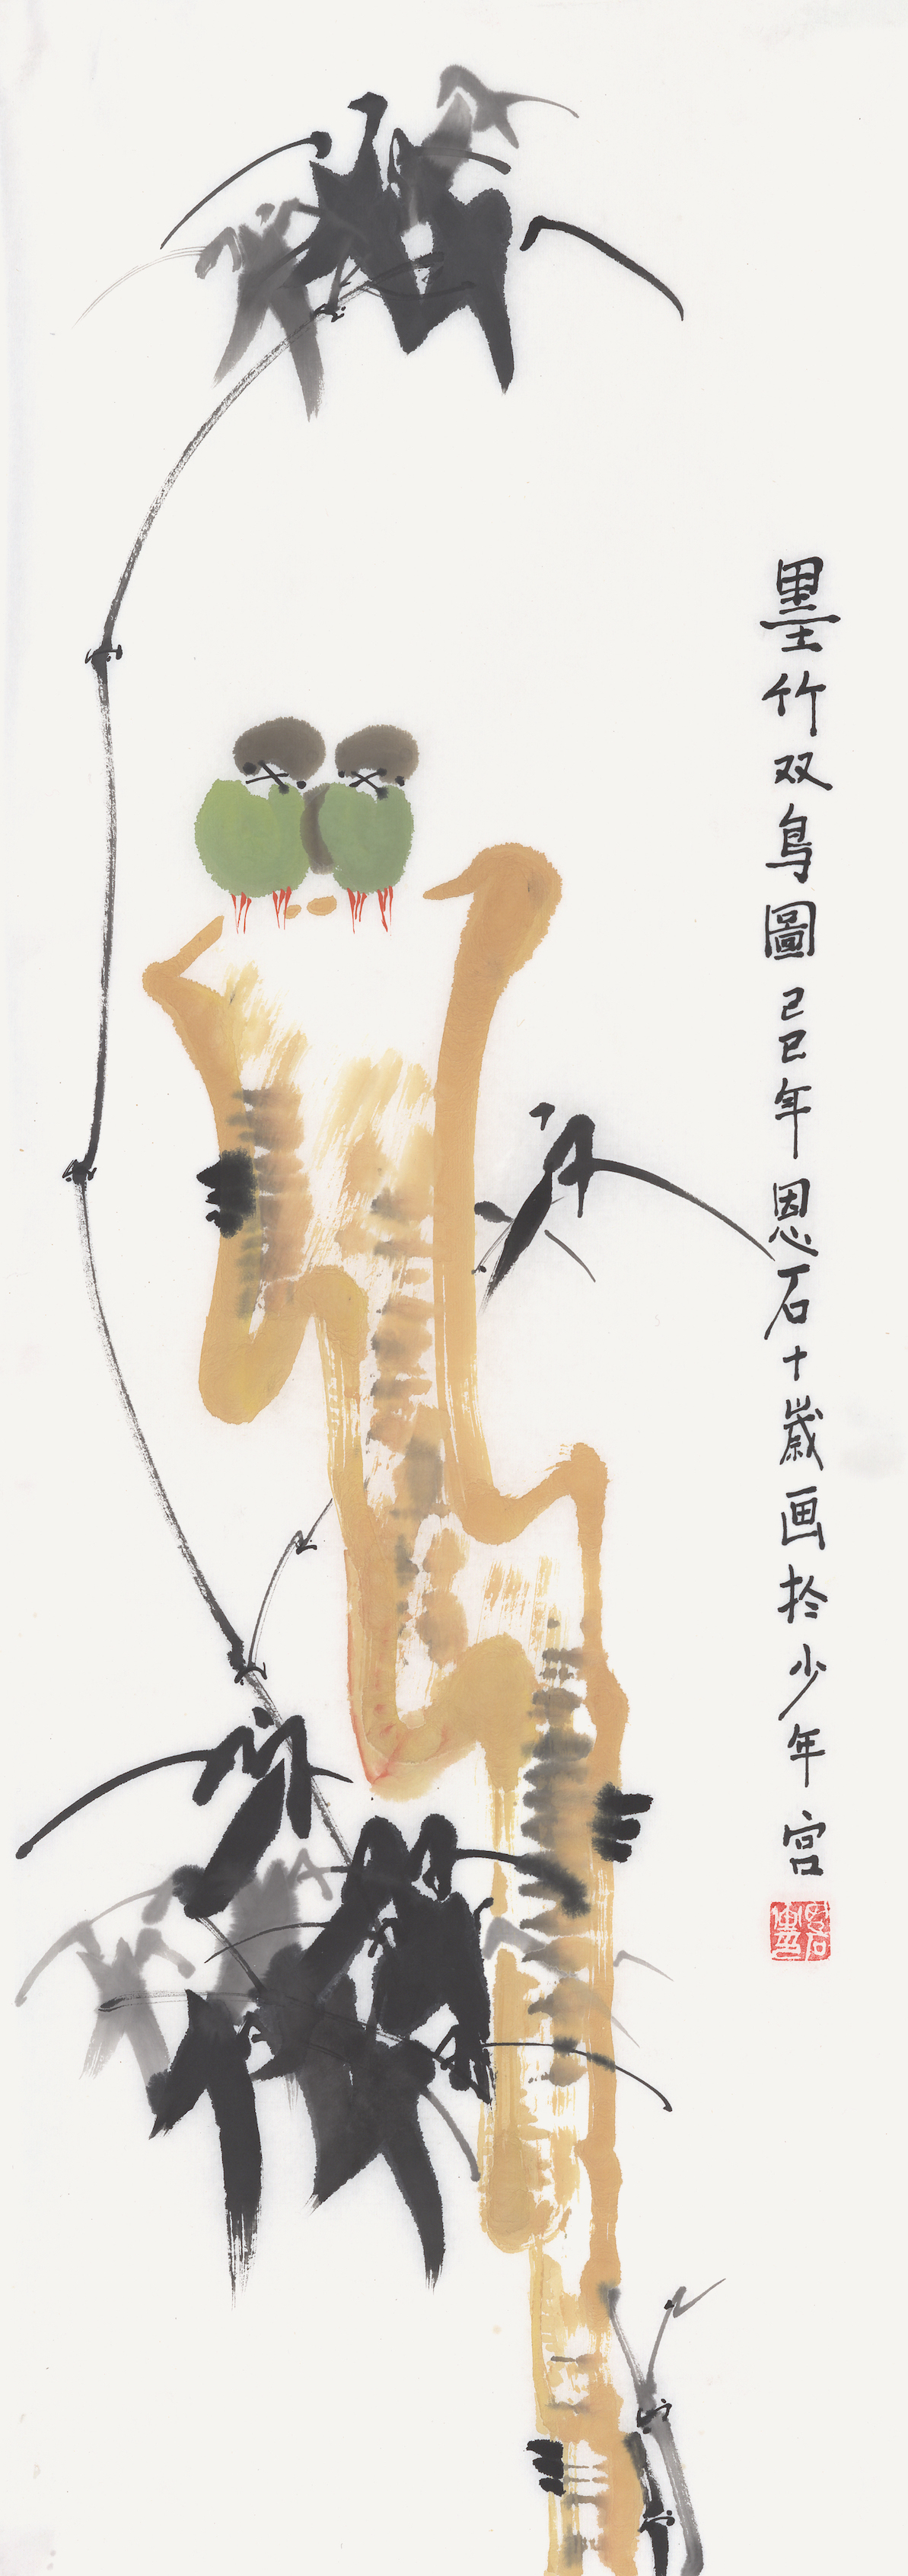 墨竹双鸟圖己巳年恩石十歲画於少年宫